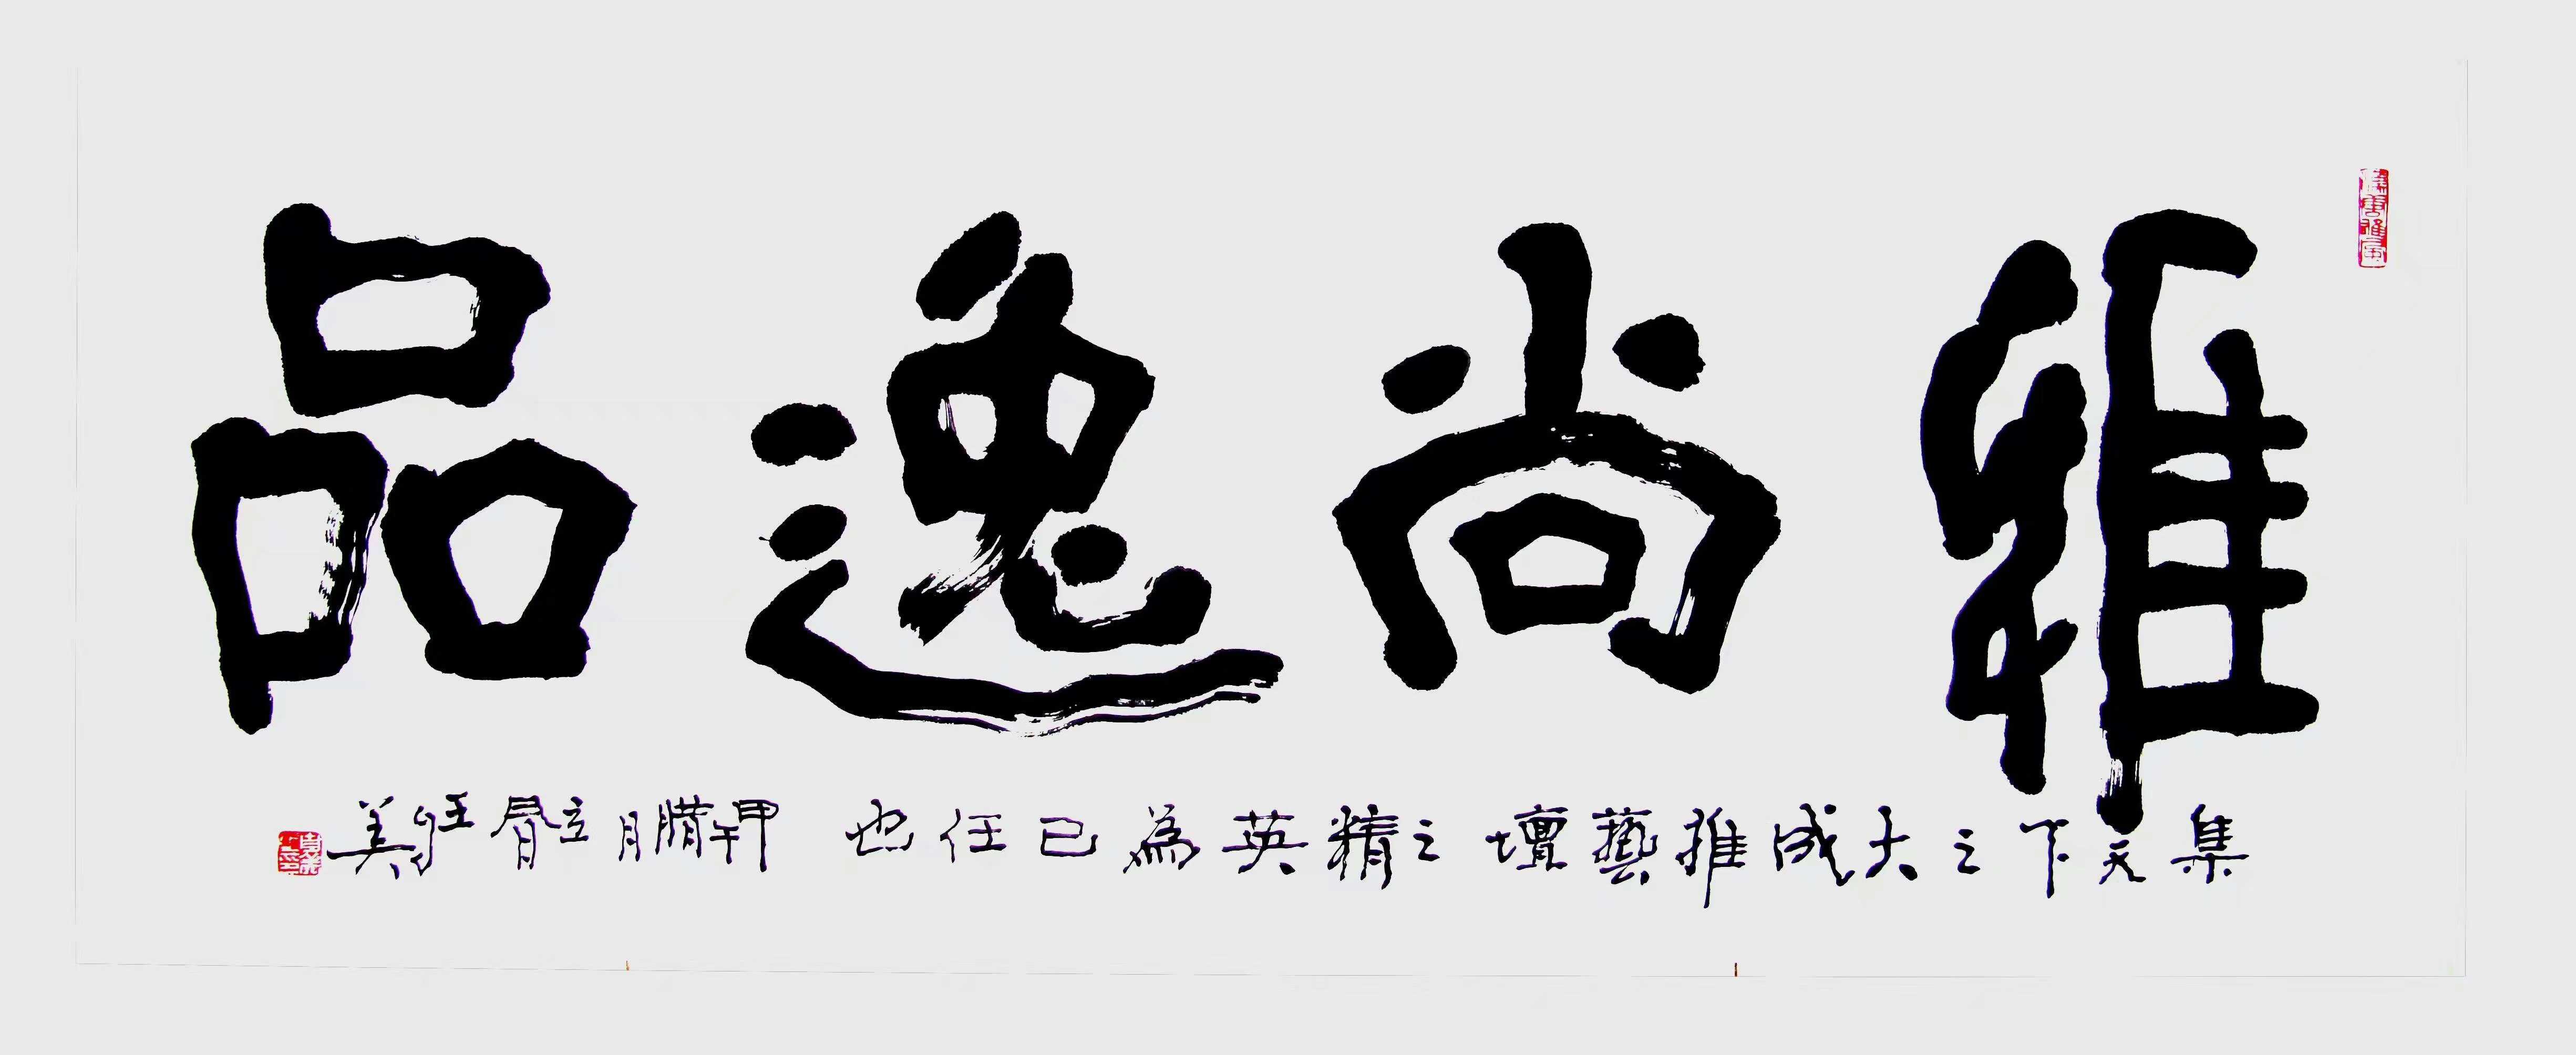 雅尚逸品
集天下之大成推藝壇之精英為己任也 甲午臘月立 美